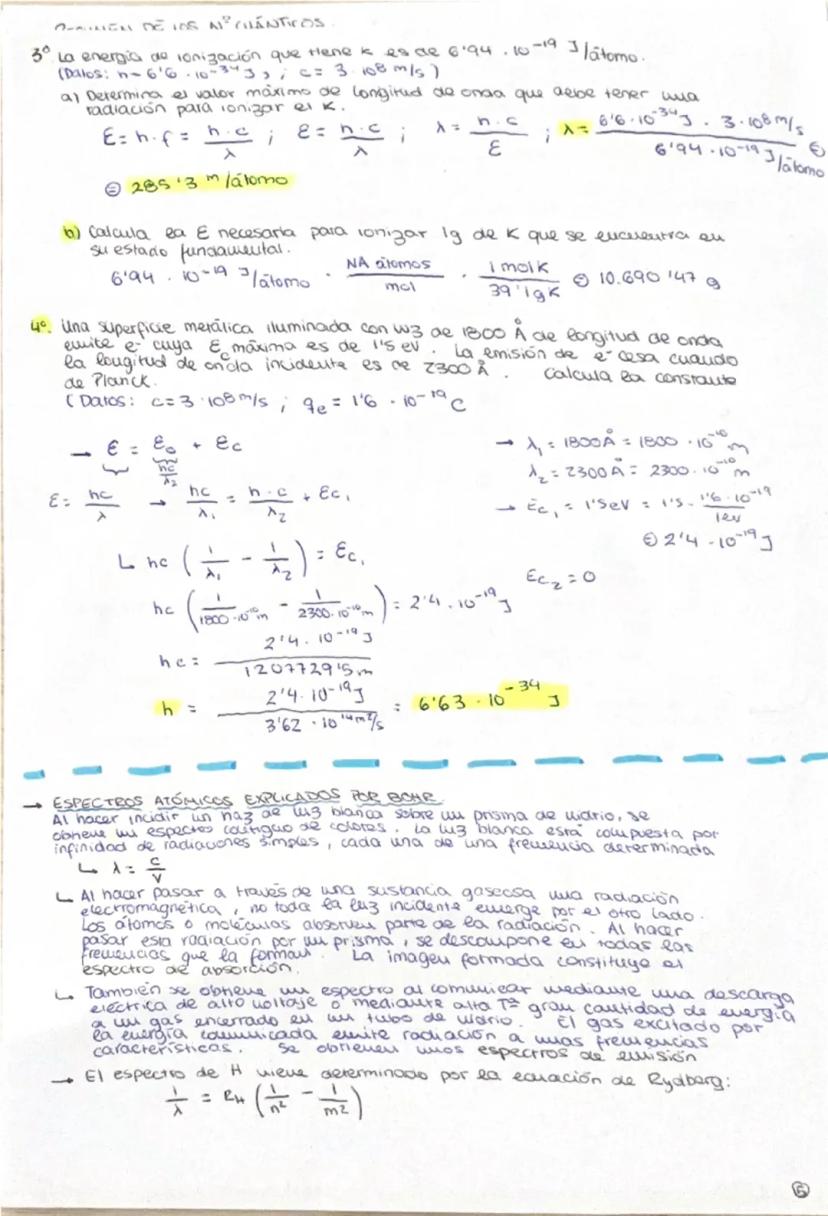 RESUMEN DE LOS Nº CUÁNTICOS.
3º La energía de ionización que tiene K es de 6'94 · 10⁻¹⁹ J/átomo.
(Datos: h= 6'6 · 10⁻³⁴ J s ; c= 3 · 10⁸ m/s)
a) Determina el valor máximo de longitud de onda que debe tener una
radiación para ionizar el K.
E = h·f = h·c/λ ; E = h·c/λ ; λ = h·c/E ; λ = 6'6·10⁻³⁴J · 3·10⁸m/s / 6'94·10⁻¹⁹J/átomo ⊜
⊜ 285'3 m/átomo
b) Calcula la E necesaria para ionizar 1g de K que se encuentra en
su estado fundamental.
6'94 · 10⁻¹⁹ J/átomo · NA átomos/mol · 1 mol K/39'1g K ⊜ 10.690'47 g
4º. Una superficie metálica iluminada con luz de 1800 Å de longitud de onda
emite e⁻ cuya Ec máxima es de 1'5 eV. La emisión de e⁻ cesa cuando
la longitud de onda incidente es de 2300 Å. Calcula la constante
de Planck.
(Datos: c= 3·10⁸ m/s ; qe = 1'6 · 10⁻¹⁹ C
→ E = E₀ + Ec
hc/λ₂
E = hc/λ → hc/λ₁ = h·c/λ₂ + Ec₁
↳ hc (1/λ₁ - 1/λ₂) = Ec₁
hc (1/1800·10⁻¹⁰m - 1/2300·10⁻¹⁰m) = 2'4 · 10⁻¹⁹ J
hc = 2'4 · 10⁻¹⁹ J / 1207729'5m
h = 2'4·10⁻¹⁹J / 3'62 · 10¹⁴m²/s = 6'63 · 10⁻³⁴ J
→ λ₁ = 1800Å = 1800 · 10⁻¹⁰ m
λ₂ = 2300Å = 2300 · 10⁻¹⁰ m
→ Ec₁ = 1'5eV = 1'5 · 1'6·10⁻¹⁹/1eV
⊜ 2'4 · 10⁻¹⁹ J
Ec₂ = 0
→ ESPECTROS ATÓMICOS EXPLICADOS POR BOHR
Al hacer incidir un haz de luz blanca sobre un prisma de vidrio, se
obtiene un espectro contiguo de colores. La luz blanca está compuesta por
infinidad de radiaciones simples, cada una de una frecuencia determinada
↳ λ = c/v
↳ Al hacer pasar a través de una sustancia gaseosa una radiación
electromagnética, no toda la luz incidente emerge por el otro lado.
Los átomos o moléculas absorven parte de la radiación. Al hacer
pasar esta radiación por un prisma, se descompone en todas las
frecuencias que la forman. La imagen formada constituye el
espectro de absorción.
↳ También se obtiene un espectro al comunicar mediante una descarga
eléctrica de alto voltaje o mediante alta Tª gran cantidad de energía
a un gas encerrado en un tubo de vidrio. El gas excitado por
la energía comunicada emite radiación a unas frecuencias
características. Se obtienen unos espectros de emisión
→ El espectro de H viene determinado por la ecuación de Rydberg:
1/λ = RH (1/n² - 1/m2)
5